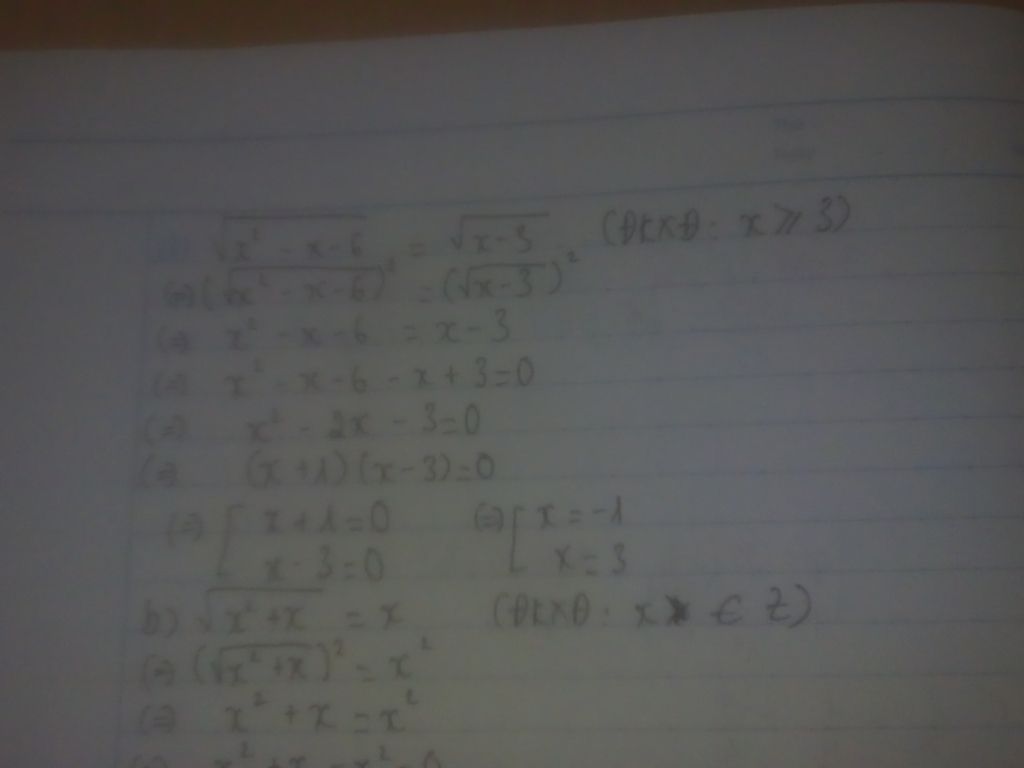 a) √(x² - x - 6) = √(x - 3) (ĐKXĐ: x ≥ 3)
(=) (√(x² - x - 6))² = (√(x - 3))²
(=) x² - x - 6 = x - 3
(=) x² - x - 6 - x + 3 = 0
(=) x² - 2x - 3 = 0
(=) (x + 1)(x - 3) = 0
(=) [ x + 1 = 0 (=) [ x = -1
x - 3 = 0 x = 3
b) √(x² + x) = x (ĐKXĐ: x ∈ Z)
(=) (√(x² + x))² = x²
(=) x² + x = x²
(=) x² + x - x² = 0